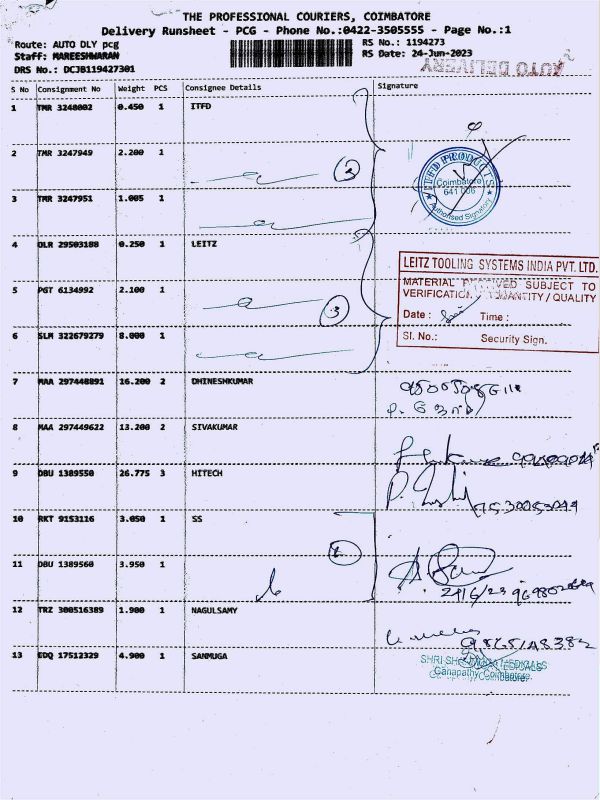 THE PROFESSIONAL COURIERS, COIMBATORE
Delivery Runsheet - PCG - Phone No.:0422-3505555 - Page No.:1
Route: AUTO DLY pcg RS No.: 1194273
Staff: MAREESHWARAN RS Date: 24-Jun-2023
DRS No.: DCJB119427301
AUTO DELIVERY
S No Consignment No Weight PCS Consignee Details Signature
1 TMR 3248002 0.450 1 ITFD
2 TMR 3247949 2.200 1
2
ITFD PRODUCTS
Coimbatore
641 006
Authorised Signatory
3 TMR 3247951 1.005 1
4 DLR 29503188 0.250 1 LEITZ
LEITZ TOOLING SYSTEMS INDIA PVT. LTD.
MATERIAL RECEIVED SUBJECT TO
VERIFICATION QUANTITY / QUALITY
Date : Time :
Sl. No.: Security Sign.
5 PGT 6134992 2.100 1
3
6 SLM 322679279 8.000 1
7 MAA 297448891 16.200 2 DHINESHKUMAR
8 MAA 297449622 13.200 2 SIVAKUMAR
9 DBU 1389550 26.775 3 HITECH
10 RKT 9153116 3.050 1 SS
11 DBU 1389560 3.950 1
12 TRZ 300516389 1.900 1 NAGULSAMY
13 EDQ 17512329 4.900 1 SANMUGA
SHRI MEDICALS
Ganapathy, Coimbatore.